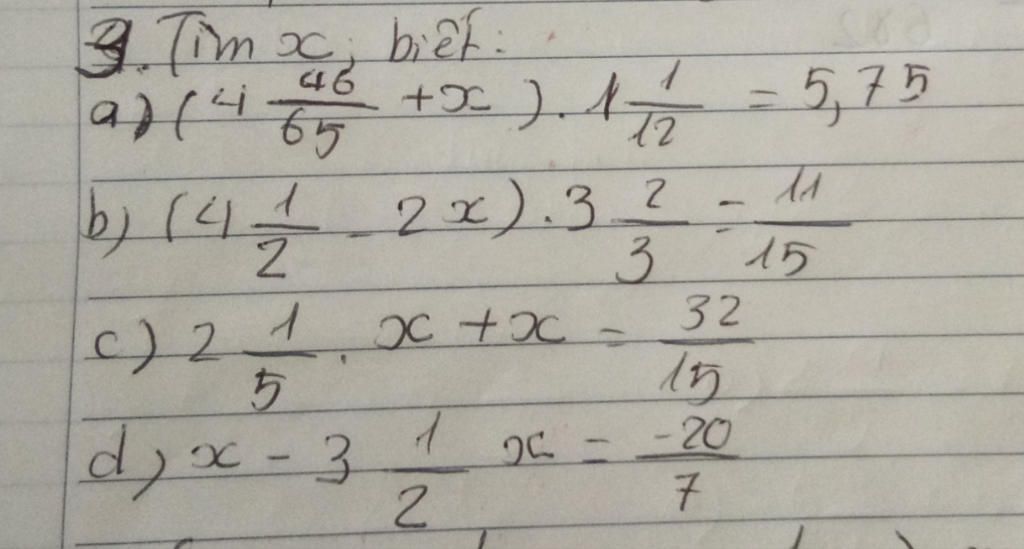 3. Tìm x, biết:
a) (4 46/65 + x) . 1 1/12 = 5,75
b) (4 1/2 - 2x) . 3 2/3 = 11/15
c) 2 1/5 . x + x = 32/15
d) x - 3 1/2 x = -20/7